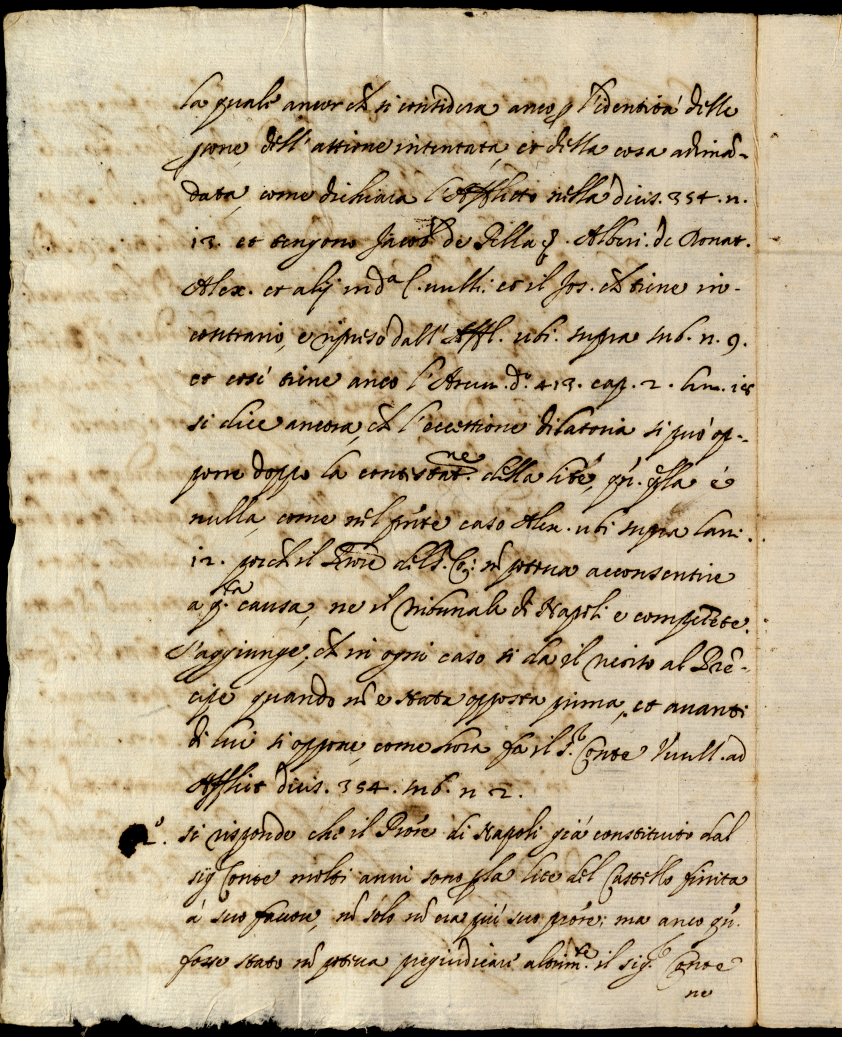 la quale ancor ch̃ si considera anco ꝑ l'identità delle
ꝑsone dell'attione intentata, et della cosa adimã-
data, come dichiara l'Afflitto nella decis. 354. n.
13. et tengono Jacob. de Bella ꝑ. Alberi. de Ronat.
Alex. et alij in dᵃ l. nulli. et il Jos. ch̃ tiene in
contrario, è ripreso dall'Affl. ubi. supra sub. n. 9.
et così tiene anco l' dᵒ. 413. cap. 2. 18
si dice ancora, ch̃ l'eccettione dilatoria si può op-
porre doppo la contestatⁿᵉ. della lite, qñ. q̃lla è
nulla, come nel pñte caso Alex. ubi supra
12. perch̃ il Prore del S. Co: nõ poteva acconsentire
a q.ᵗᵃ causa, ne il tribunale di Napoli è competẽte.
S'aggiunge, ch̃ in ogni caso si dà il reietto al Prẽ-
cipe quando nõ è stata opposta prima, et avanti
di lui si oppone, come hora fa il S.ʳ Conte Vuull. ad
Afflict decis. 354. sub. n 2.
2.º si risponde che il Prore di Napoli già constituito dal
sig Conte molti anni sono ꝑ la lite del Castello finita
à suo favore, nõ solo nõ era più suo prore: ma anco qñ.
fosse stato nõ poteva pregiudicare altrimᵗᵉ. il sig.ʳ Conte
ne